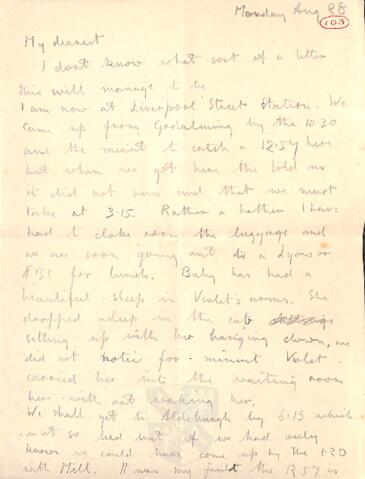 Monday Aug 28
103
My dearest
I dont know what sort of a letter
this will manage to be
I am now at Liverpool Street Station. We
came up from Godalming by the 10.30
and the meant to catch a 12.57 here
but when we got here the told us
it did not run and that we must
take at 3.15. Rather a bother I have
had to cloak room the luggage and
we are soon going out to a Lyons or
ABC for lunch. Baby has had a
beautiful sleep in Violet's arms. She
dropped asleep in the cab
sitting up with her hanging down, we
did not notice for minute Violet
carried her into the waiting room
here without waking her.
We shall get to Aldeburgh by 6.15 which
not so bad but if we had only
known we could have come up by the 1.20
with Mill. It was my fault the 12.57 is